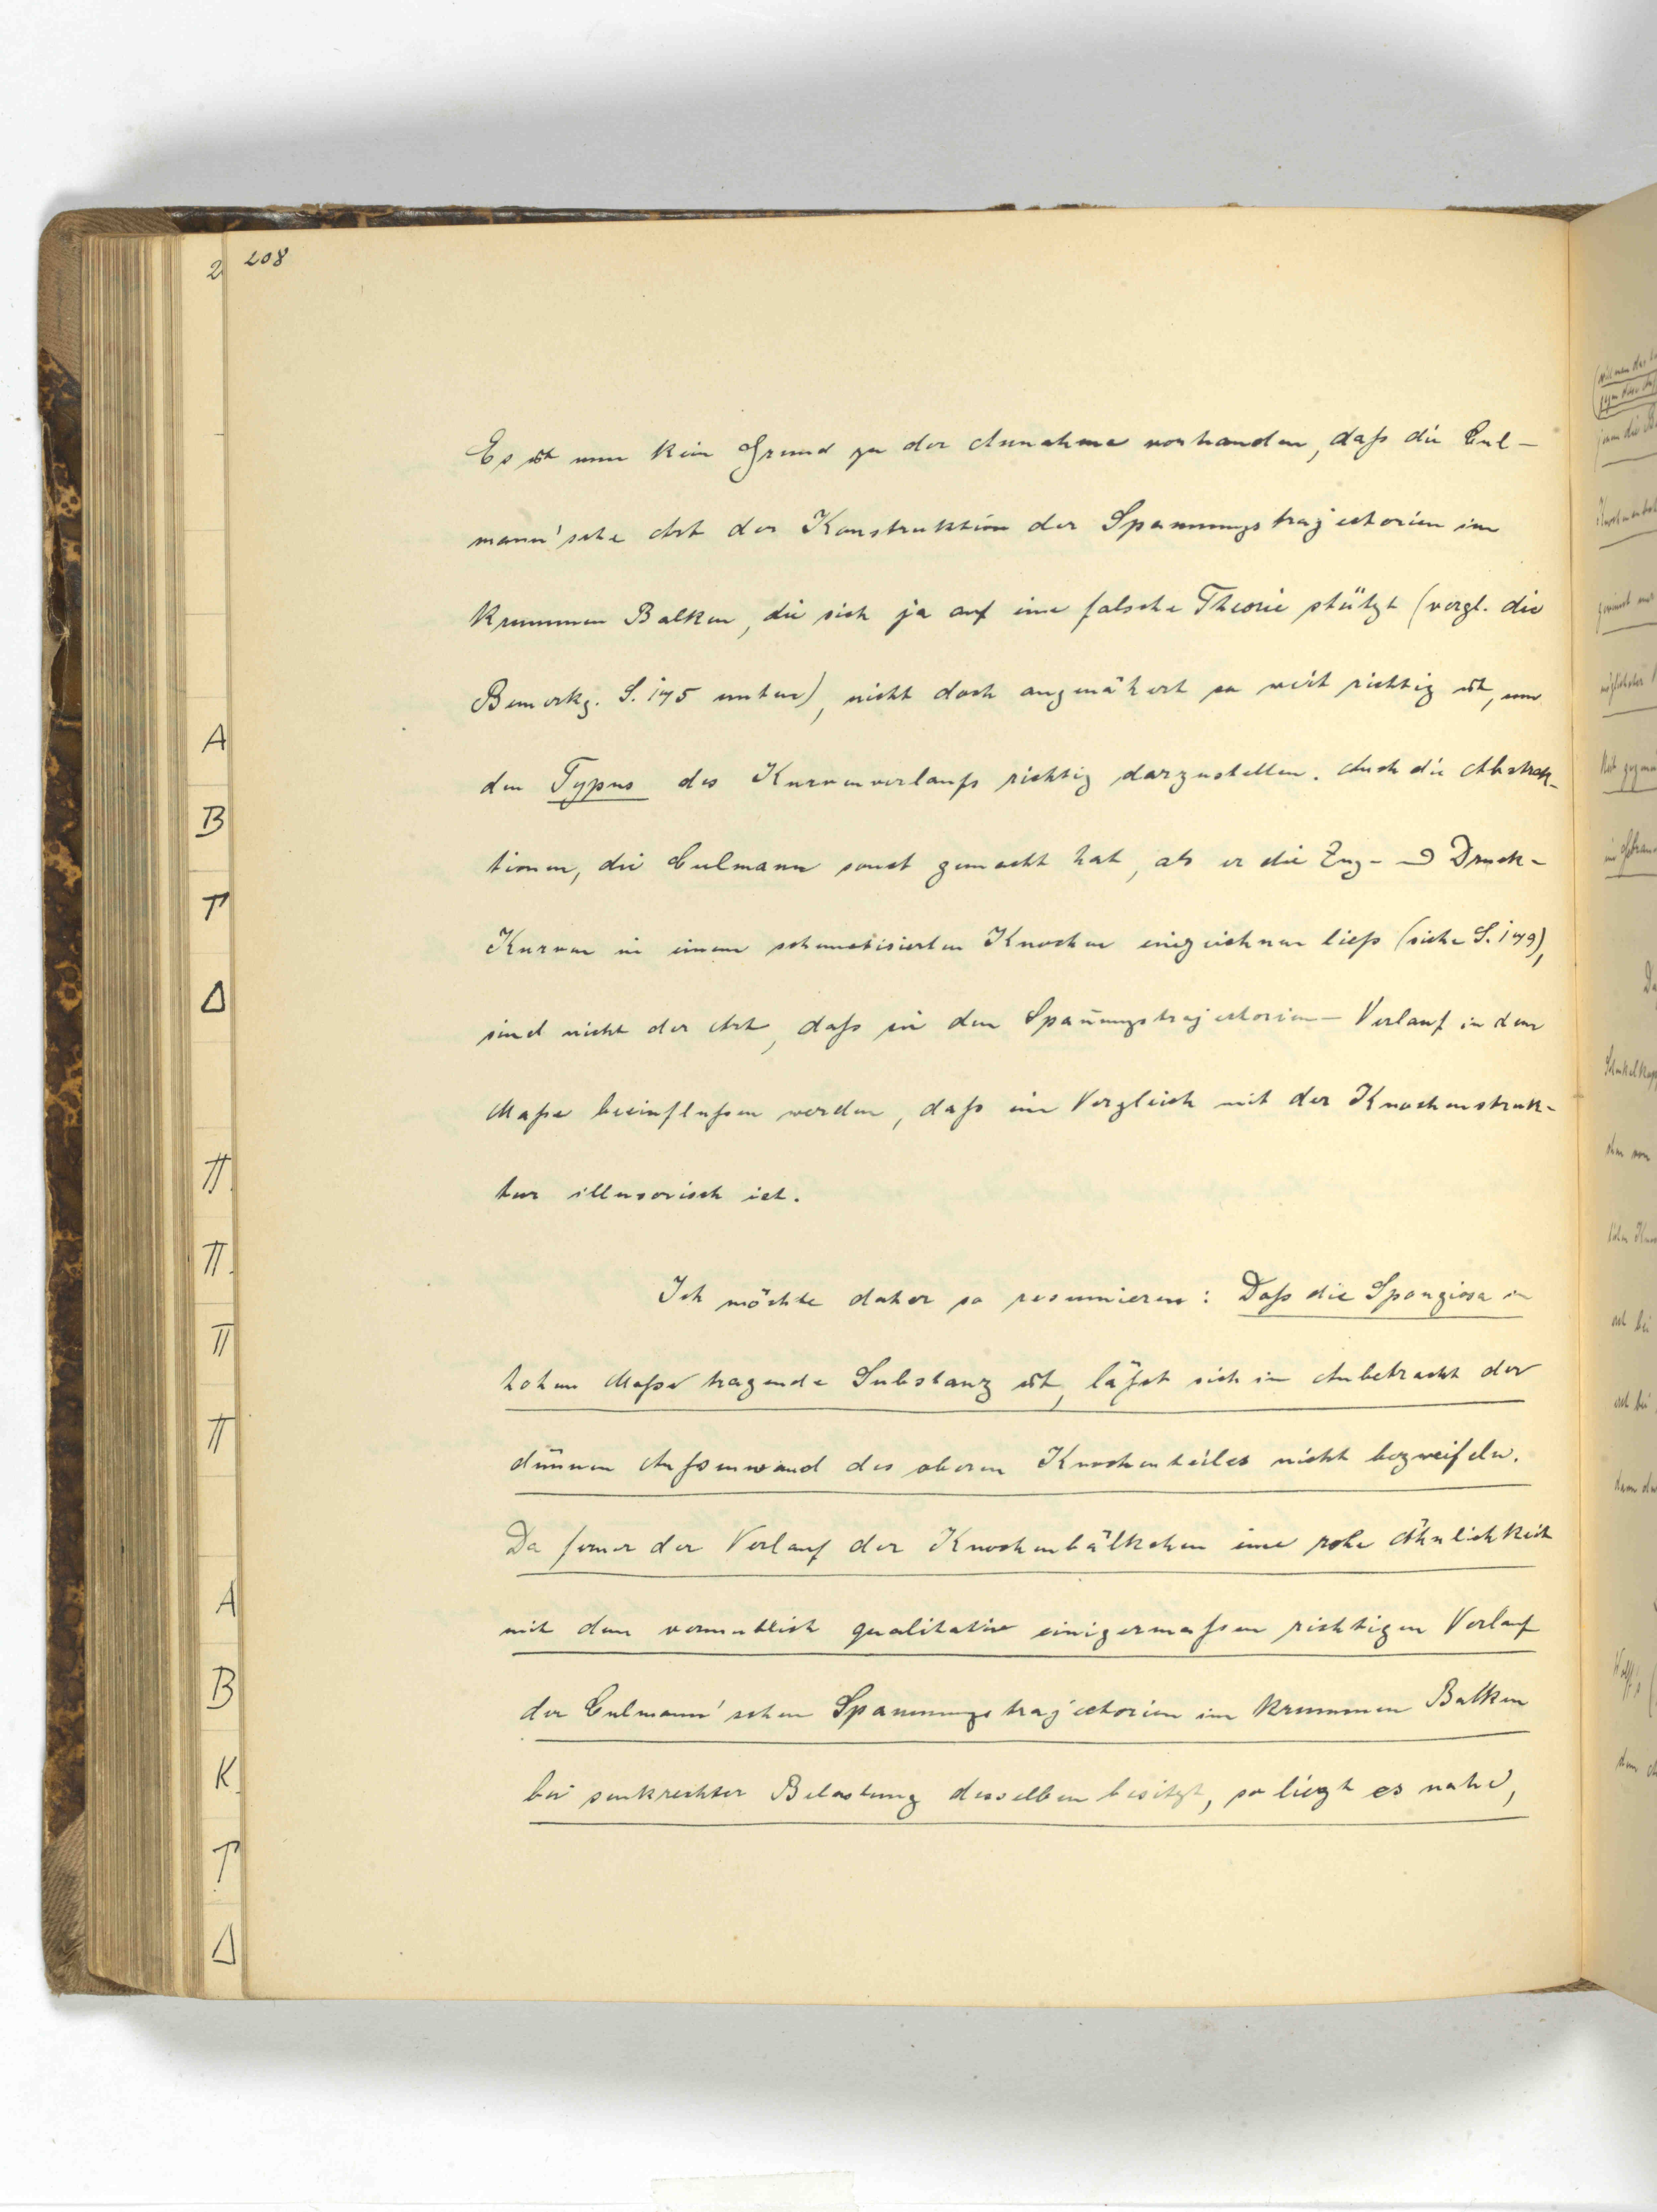 208
2
Es ist nun kein Grund zu der Annahme vorhanden, daß die Cul-
mann'sche Art der Konstruktion der Spannungstrajectorien im
krummen Balken, die sich ja auf eine falsche Theorie stützt (vergl. die
Bemerkg. S. 175 unten), nicht doch angenähert so weit richtig ist, um
den Typus des Kurvenverlaufs richtig darzustellen. Auch die Abstrak-
tionen, die Culmann sonst gemacht hat, als er die Zug- und Druck-
Kurven in einen schematisierten Knochen einzeichnen ließ (siehe S. 179),
sind nicht der Art, daß sie den Span̄ungstrajectorien-Verlauf in dem
Maße beeinflußen werden, daß ein Vergleich mit der Knochenstruk-
tur illusorisch ist.
Ich möchte daher so resumieren: Daß die Spongiosa in
hohem Maße tragende Substanz ist, läßt sich in Anbetracht der
dünnen Außenwand des oberen Knochenteiles nicht bezweifeln.
Da ferner der Verlauf der Knochenbälkchen eine rohe Ähnlichkeit
mit dem vermutlich qualitativ einigermaßen richtigen Verlauf
der Culmann'schen Spannungstrajectorien im krummen Balken
bei senkrechter Belastung desselben besitzt, so liegt es nahe,
A
B
Γ
Δ
Π
Π
Π
Π
A
B
K
Γ
Δ